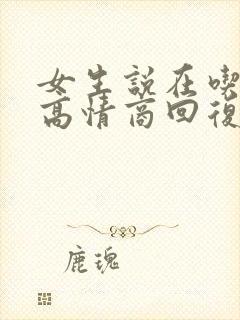 女生說在喫
高情商回復
鹿瑰